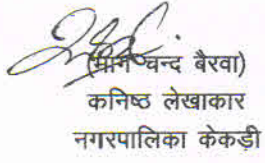 (मान चन्द बैरवा)
कनिष्ठ लेखाकार
नगरपालिका केकड़ी